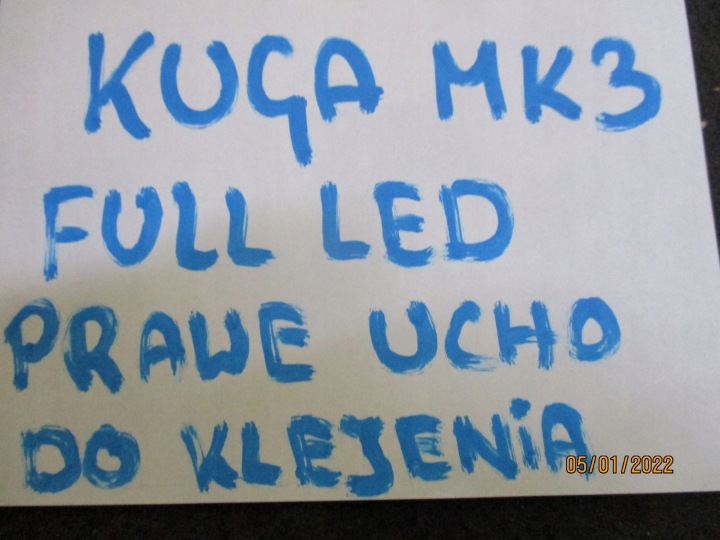 KUGA MK3
FULL LED
PRAWE UCHO
DO KLEJENiA
05/01/2022